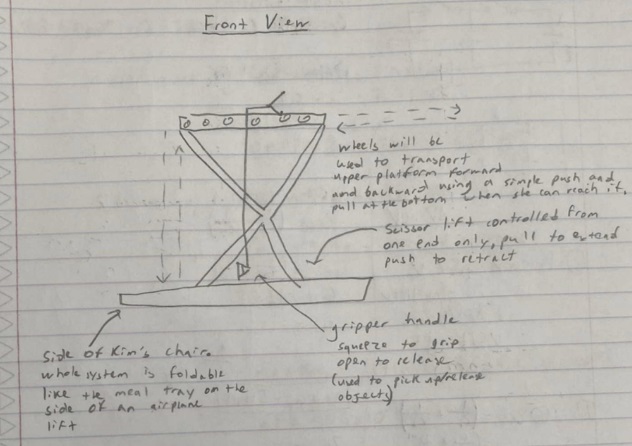 Front View
wheels will be
used to transport
upper platform forward
and backward using a simple push and
pull at the bottom when she can reach it.
scissor lift controlled from
one end only, pull to extend
push to retract
gripper handle
squeeze to grip
open to release
(used to pick up/release
objects)
side of Kim's chair.
whole system is foldable
like the meal tray on the
side of an airplane
lift